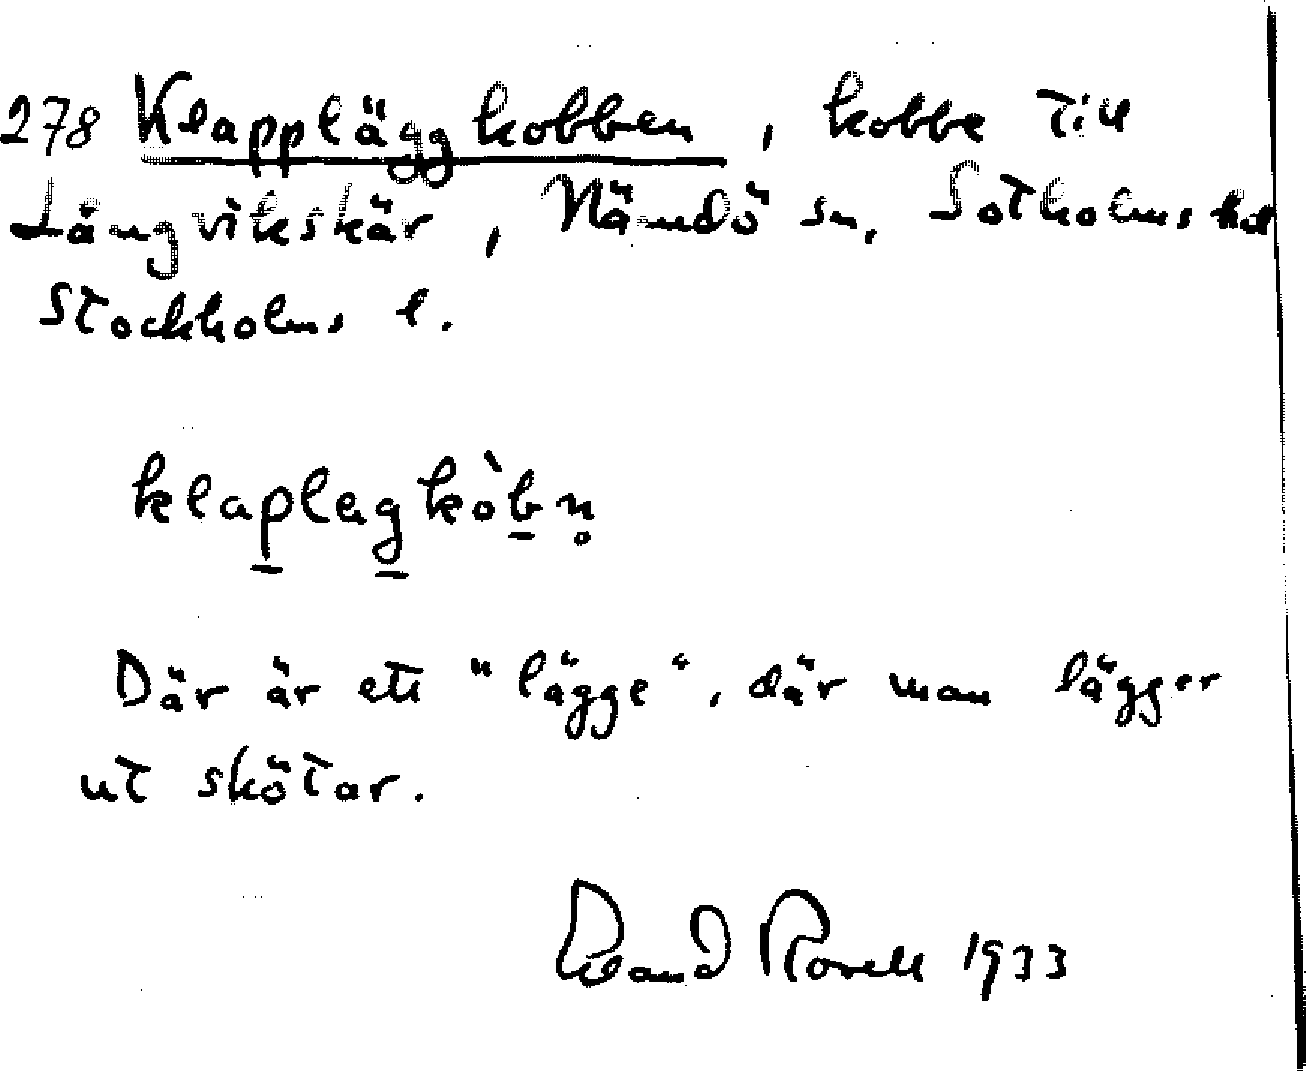 278 Klappläggkobben, kobbe till
Långviksskär, Nämdö sn, Sotholms hd
Stockholms l.
klaplagkòbn̥
Där är ett "lägge", där man lägger
ut skötar.
Rosell 1933